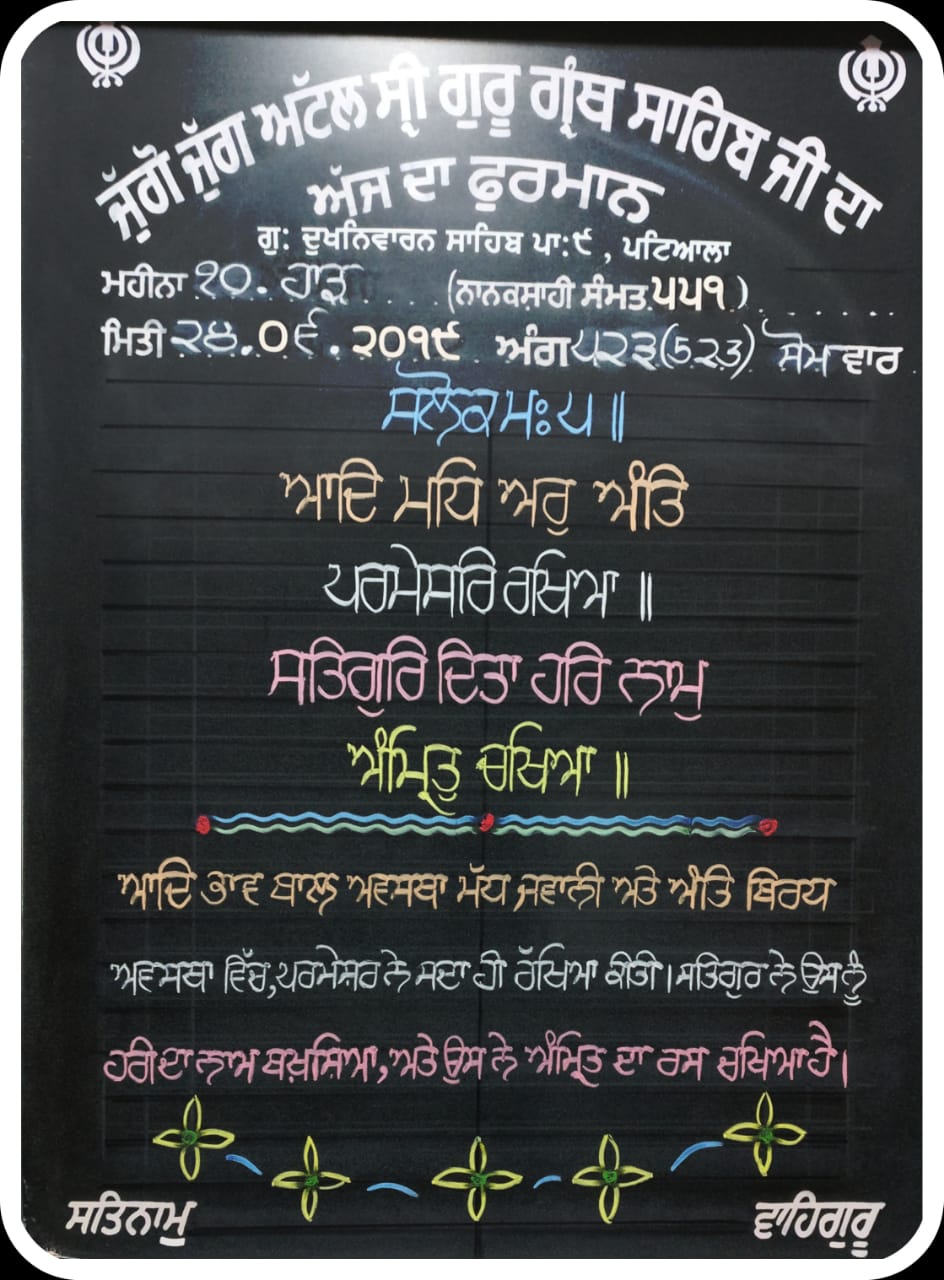 ਜੁੱਗੋ ਜੁੱਗ ਅੱਟਲ ਸ੍ਰੀ ਗੁਰੂ ਗ੍ਰੰਥ ਸਾਹਿਬ ਜੀ ਦਾ
ਅੱਜ ਦਾ ਫੁਰਮਾਨ
ਗੁ: ਦੁਖਨਿਵਾਰਨ ਸਾਹਿਬ ਪਾ:੯ , ਪਟਿਆਲਾ
ਮਹੀਨਾ ੧੦. ਹਾੜ (ਨਾਨਕਸਾਹੀ ਸੰਮਤ ੫੫੧)
ਮਿਤੀ ੨੪.੦੬.੨੦੧੯ ਅੰਗ ੫੨੩(523) ਸੋਮ ਵਾਰ
ਸਲੋਕ ਮਃ ੫ ॥
ਆਦਿ ਮਧਿ ਅਰੁ ਅੰਤਿ
ਪਰਮੇਸਰਿ ਰਖਿਆ ॥
ਸਤਿਗੁਰਿ ਦਿਤਾ ਹਰਿ ਨਾਮੁ
ਅੰਮ੍ਰਿਤੁ ਚਖਿਆ ॥
ਆਦਿ ਭਾਵ ਬਾਲ ਅਵਸਥਾ ਮੱਧ ਜਵਾਨੀ ਅਤੇ ਅੰਤਿ ਬਿਰਧ
ਅਵਸਥਾ ਵਿੱਚ,ਪਰਮੇਸ਼ਰ ਨੇ ਸਦਾ ਹੀ ਰੱਖਿਆ ਕੀਤੀ। ਸਤਿਗੁਰ ਨੇ ਉਸ ਨੂੰ
ਹਰੀ ਦਾ ਨਾਮ ਬਖ਼ਸ਼ਿਆ, ਅਤੇ ਉਸ ਨੇ ਅੰਮ੍ਰਿਤ ਦਾ ਰਸ ਚਖਿਆ ਹੈ।
ਸਤਿਨਾਮੁ ਵਾਹਿਗੁਰੂ